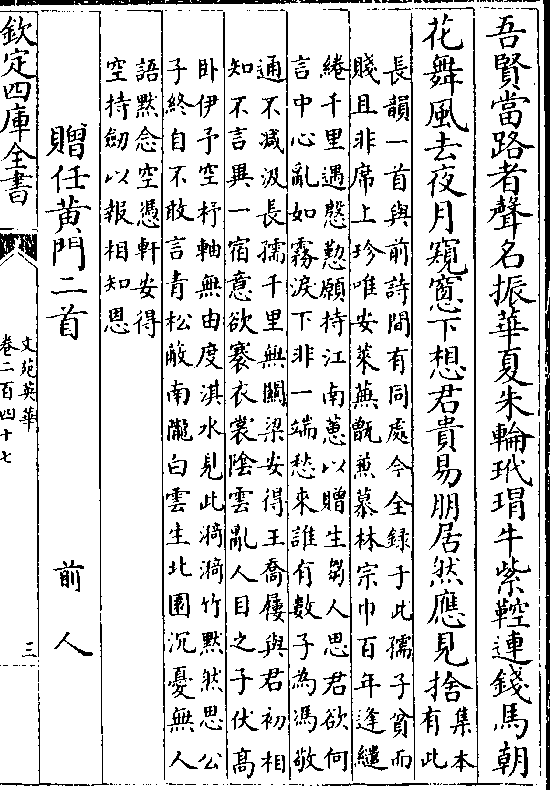 吾賢當路者聲名振華夏朱輪玳瑁牛紫鞚連錢馬朝
花舞風去夜月窺窓下想君貴易朋居然應見捨集本
有此
長韻一首與前詩間有同處今全録于此孺子貧而
賤且非席上珍唯安萊蕪甑兼慕林宗巾百年逢繾
綣千里遇慇懃願持江南蕙以贈生芻人思君欲何
言中心亂如霧淚下非一端愁來誰有數子為馮敬
通不减汲長孺千里無關梁安得王喬屨與君初相
知不言異一宿意欲褰衣裳陰雲亂人目之子伏高
卧伊予空杼軸無由度淇水見此漪漪竹黙然思公
子終自不敢言青松蔽南隴白雲生北園沉憂無人
語黙念空憑軒安得
空持劒以報相知恩
贈任黄門二首 前人
欽定四庫全書
文苑英華
卷二百四十七
三